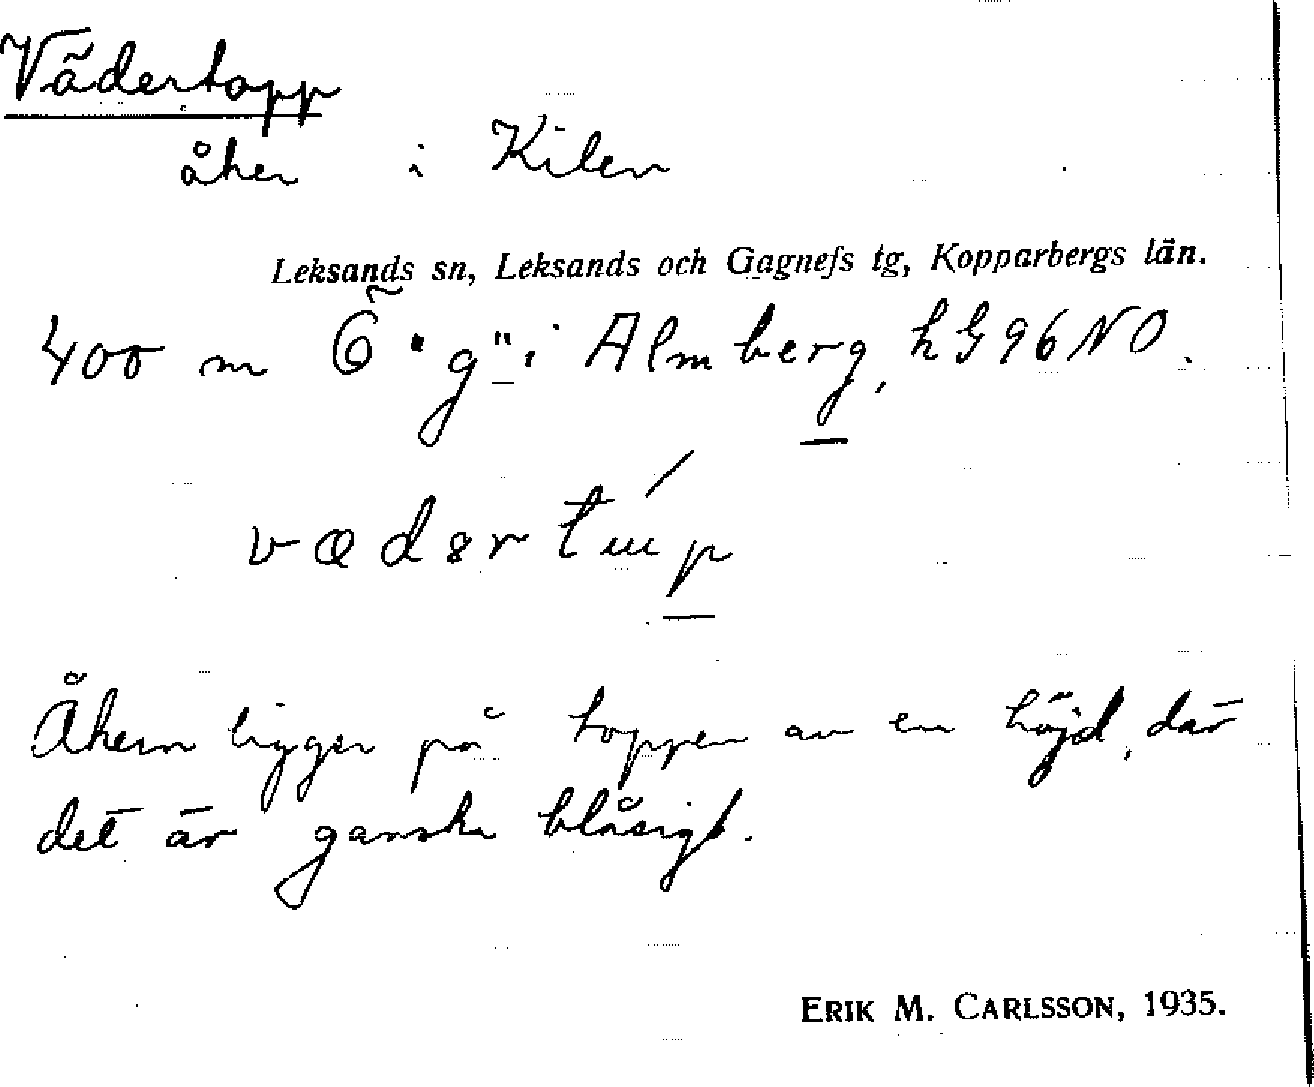 Vädertopp
åker i Kilen
Leksands sn, Leksands och Gagnefs tg, Kopparbergs län.
400 m Ö "g" i Almberg, k G 96 NO.
Åkern ligger på toppen av en höjd, där
det är ganska blåsigt.
ERIK M. CARLSSON, 1935.